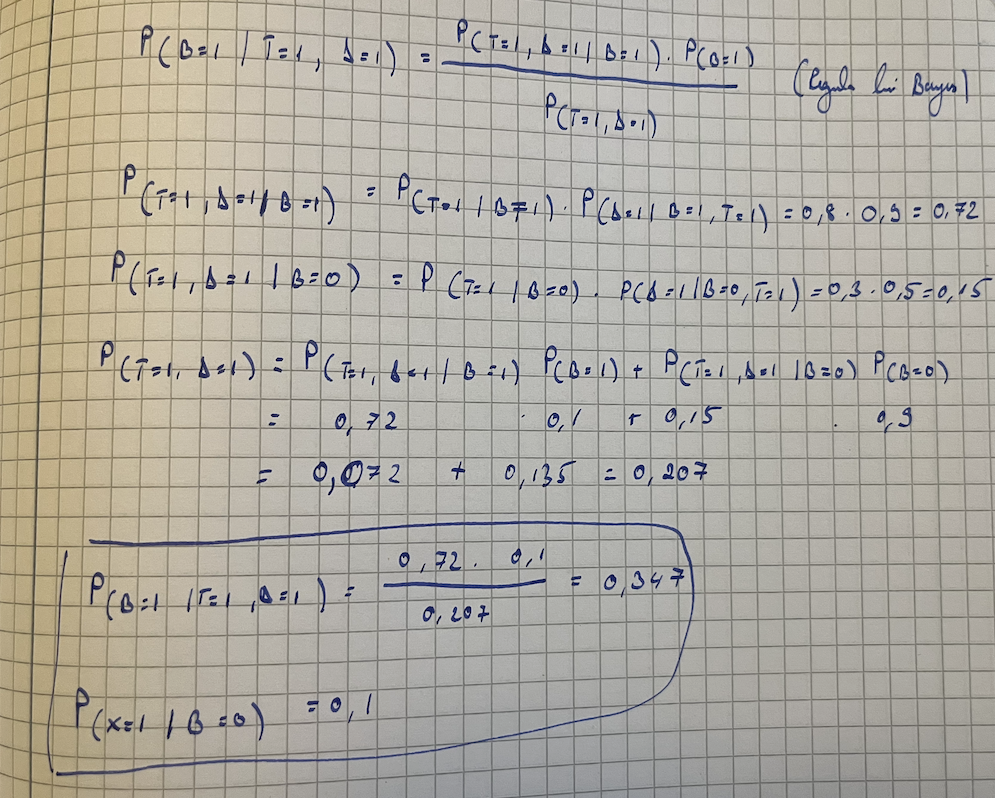 P(B=1 | T=1, Δ=1) = P(T=1, Δ=1 | B=1) · P(B=1) / P(T=1, Δ=1) (Regula lui Bayes)
P(T=1, Δ=1 | B=1) = P(T=1 | B=1) · P(Δ=1 | B=1, T=1) = 0,8 · 0,9 = 0,72
P(T=1, Δ=1 | B=0) = P(T=1 | B=0) · P(Δ=1 | B=0, T=1) = 0,3 · 0,5 = 0,15
P(T=1, Δ=1) = P(T=1, Δ=1 | B=1) P(B=1) + P(T=1, Δ=1 | B=0) P(B=0)
= 0,72 · 0,1 + 0,15 · 0,9
= 0,072 + 0,135 = 0,207
P(B=1 | T=1, Δ=1) = 0,72 · 0,1 / 0,207 = 0,347
P(X=1 | B=0) = 0,1